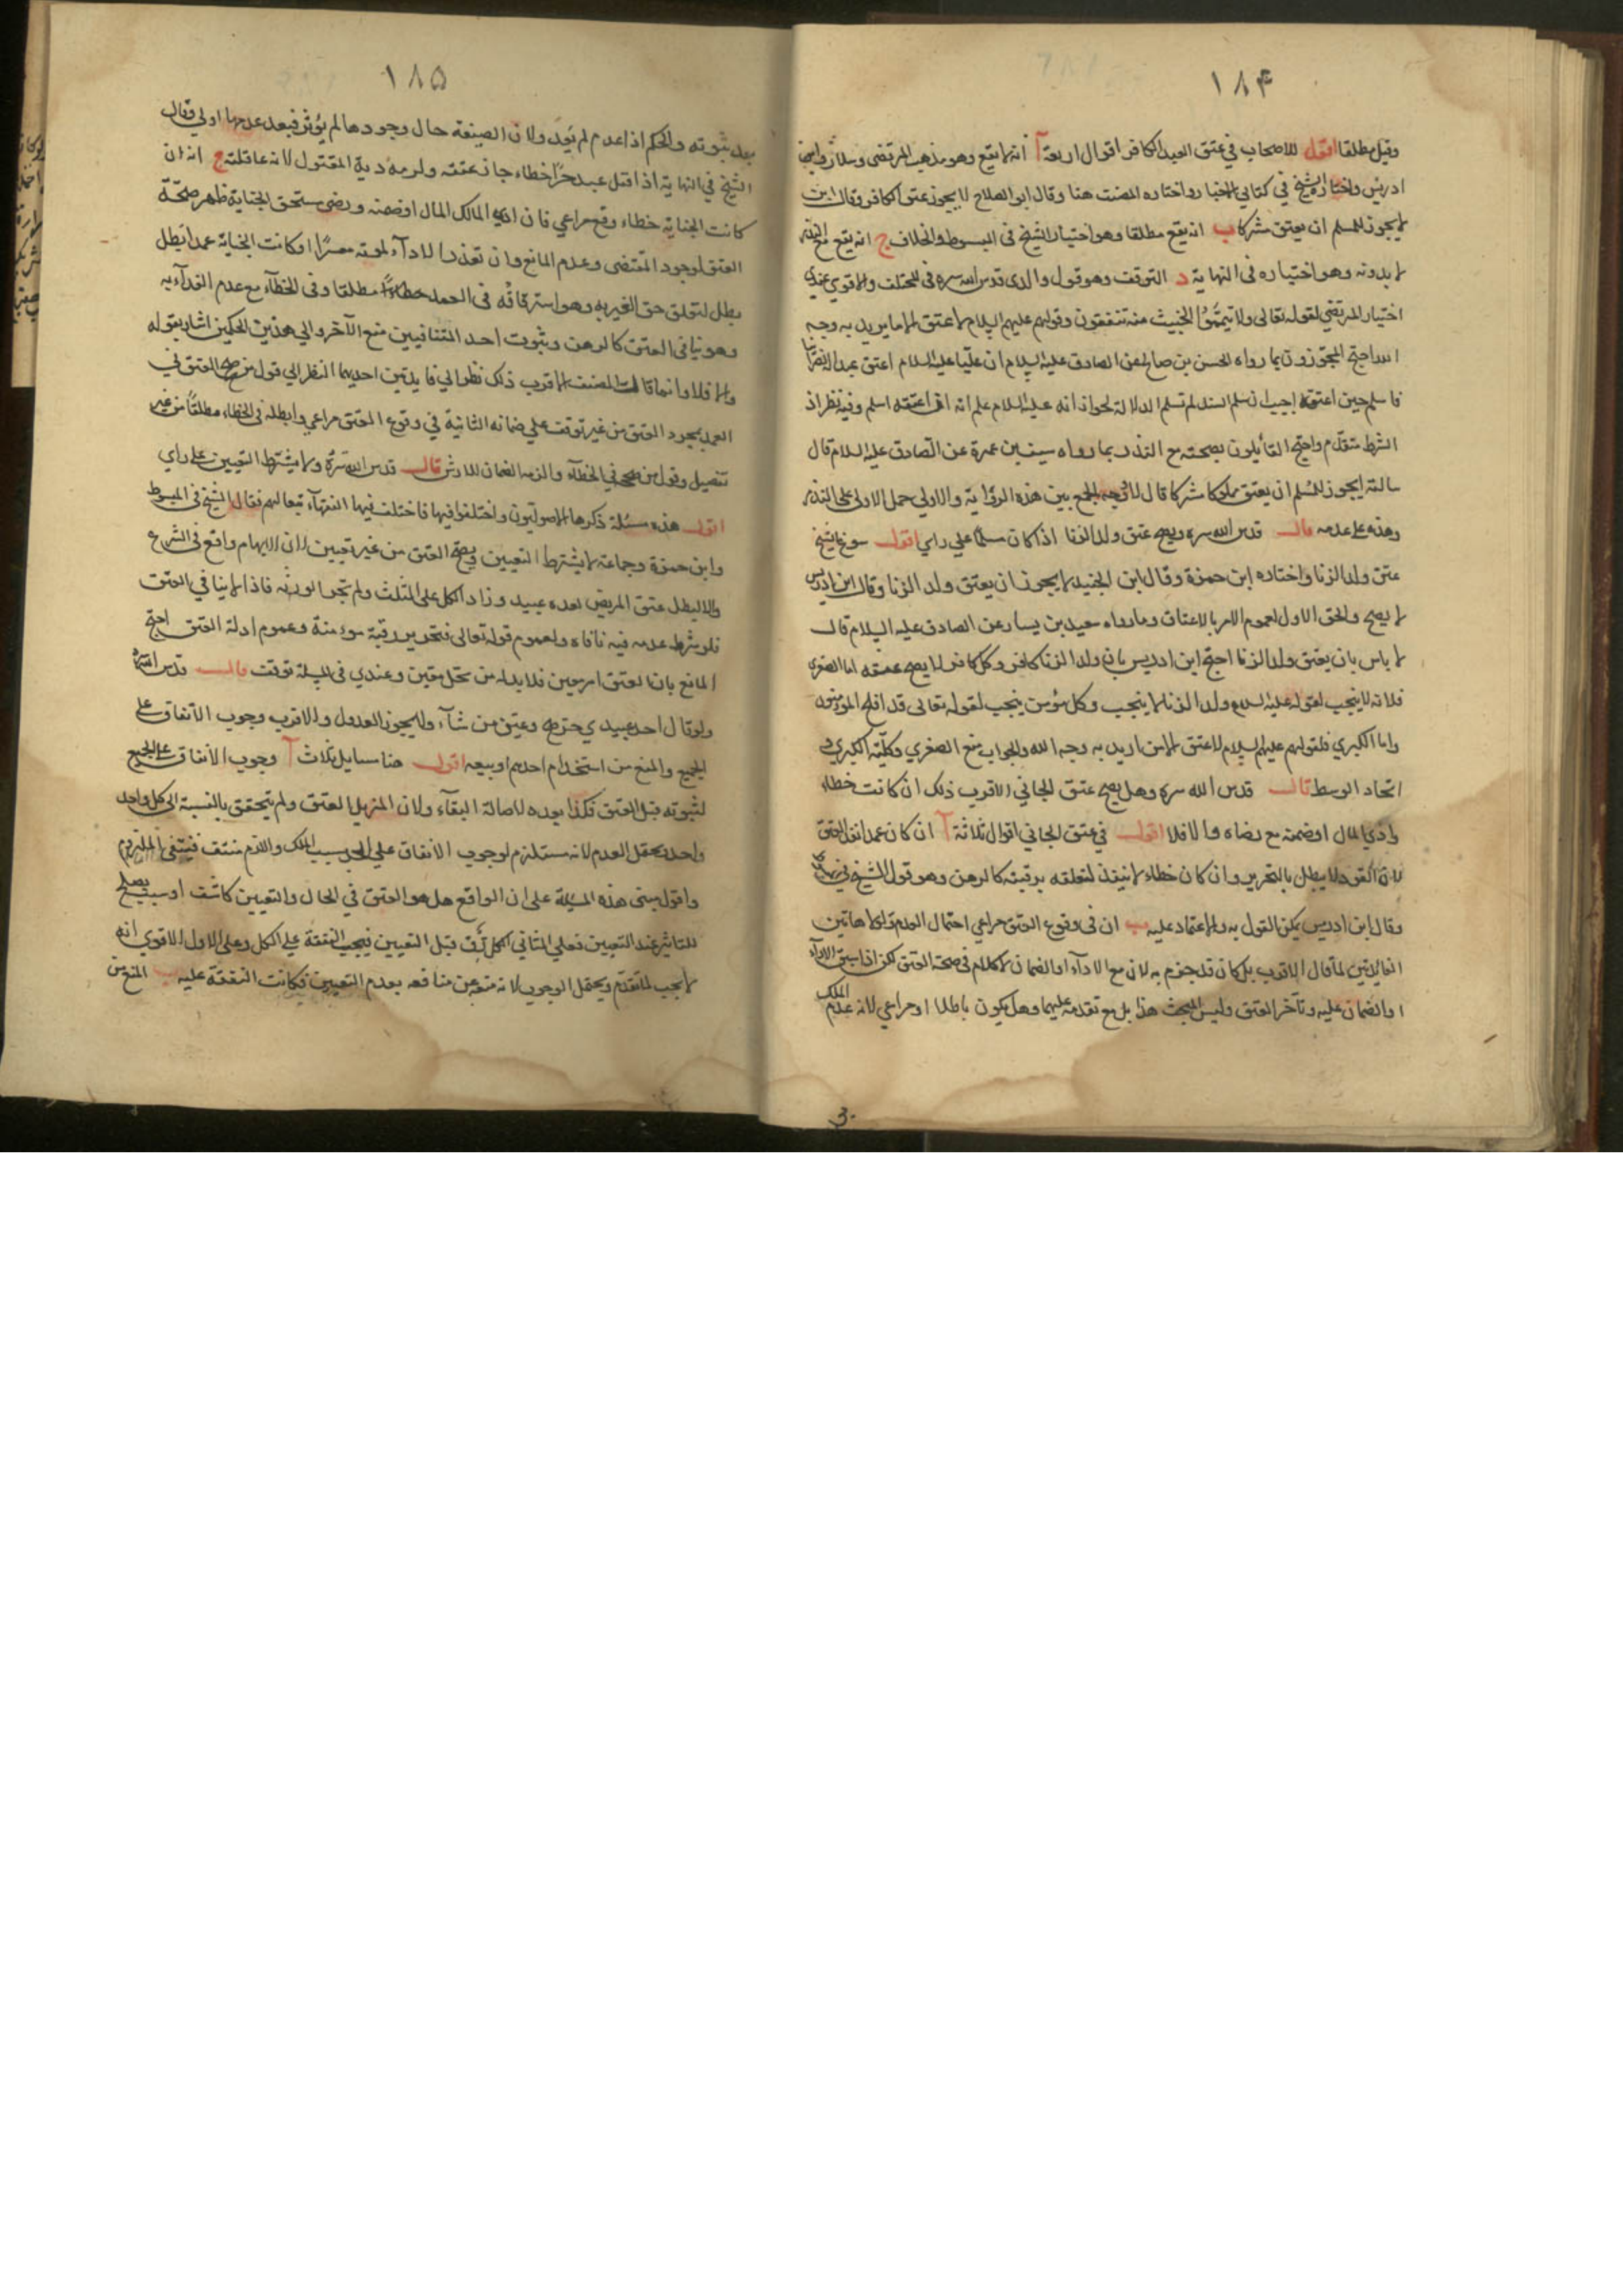 ۱۸۴
وقيل مطلقا اقول للاصحاب في عتق العبد الكافر اقوال اربعة آ انه لا يقع وهو مذهب المرتضى وسلار وابن
ادريس واختاره الشيخ في كتابي الاخبار واختاره المصنف هنا وقال ابو الصلاح لا يجوز عتق الكافر وقال ابن
لا يجوز للمسلم ان يعتق مشركا ب انه يقع مطلقا وهو اختيار الشيخ في المبسوط والخلاف ج انه يقع مع النذر
لا بدونه وهو اختياره في النهاية د التوقف وهو قول والدي قدس الله سره في المختلف والاقوى عندي
اختيار المرتضى لقوله تعالى ولا تيمموا الخبيث منه تنفقون وقولهم عليهم السلام لا عتق الا ما يريد به وجه
الله احتج المجوزون بما رواه الحسن بن صالح عن الصادق عليه السلام ان عليا عليه السلام اعتق عبدا نصرانيا
فاسلم حين اعتقه اجيب ان سلم السند لم تسلم الدلالة لجواز انه عليه السلام علم انه اذا اعتقه اسلم وفيه نظر اذ
الشرط متقدم واحتج القائلون بصحته مع النذر بما رواه سيف بن عميرة عن الصادق عليه السلام قال
سالته ايجوز للمسلم ان يعتق مملوكا مشركا قال لا وجه الجمع بين هذه الرواية والاولى حمل الاولى على النذر
وهذه على عدمه قال قدس الله سره ويصح عتق ولد الزنا اذا كان مسلما على راي اقول سوغ الشيخ
عتق ولد الزنا واختاره ابن حمزة وقال ابن الجنيد لا يجوز ان يعتق ولد الزنا وقال ابن ادريس
لا يصح والحق الاول لعموم الامر بالاعتاق وما رواه سعيد بن يسار عن الصادق عليه السلام قال
لا باس بان يعتق ولد الزنا احتج ابن ادريس بان ولد الزنا كافر وكل كافر لا يصح عتقه اما الصغرى
فلانه لا ينجب لقوله عليه السلام ولد الزنا لا ينجب وكل مؤمن ينجب لقوله تعالى قد افلح المؤمنون
واما الكبرى فلقولهم عليهم السلام لا عتق الا من اريد به وجه الله والجواب منع الصغرى وكلية الكبرى و
اتحاد الوسط قال قدس الله سره وهل يصح عتق الجاني الاقرب ذلك ان كانت خطاء
وادى المال او ضمنه مع رضاه والا فلا اقول في عتق الجاني اقوال ثلاثة آ ان كان عمدا نفذ العتق
لان القود لا يبطل بالتحرير وان كان خطاء لا ينفذ لتعلقه برقبته كالرهن وهو قول الشيخ في
وقال ابن ادريس يمكن القول به والاعتماد عليه ب ان في وقوع العتق مراعى احتمال العدم ولولا هاتين
الفائدتين لما قال الاقرب بل كان قد جزم به لان مع الاداء او الضمان لا كلام في صحة العتق لكن اذا سبق الاداء
او الضمان عليه وتاخر العتق وليس البحث هذا بل مع تقدمه عليهما وهل يكون باطلا او مراعى لانه عدم الملك
۱۸۵
بعد ثبوته والحكم اذا عدم لم يعد ولان الصيغة حال وجودها لم يؤثر فبعد عدمها اولى وقال
الشيخ في النهاية اذا قتل عبد حرا خطاء جاز عتقه ولزمه دية المقتول لانه عاقلته ج انه ان
كانت الجناية خطاء وقع مراعى فان ادى المالك المال او ضمنه ورضى مستحق الجناية ظهر صحة
العتق لوجود المقتضى وعدم المانع وان تعذر الاداء لموته معسرا او كانت الجناية عمدا بطل
بطل لتعلق حق الغير به وهو استرقاقه في العمد مطلقا وفي الخطآء مع عدم الفدآء به
وهو ينافي العتق كالرهن وبثبوت احد المتنافيين منع الآخر والى هذين الحكمين اشار بقوله
والا فلا وانما قال المصنف الاقرب ذلك نظرا الى فايدتين احديهما النظر الى قول من صحح العتق في
العمد بمجرد العتق من غير توقف على ضمانه الثانية في وقوع العتق مراعى وابطله في الخطاء مطلقا من غير
تفصيل وقول من صححه في الخطآء والزمه الضمان للارش قال قدس الله سره ولا يشترط التعيين على راي
اقول هذه مسئلة ذكرها الاصوليون واختلفوا فيها فاختلف فيها الفقهآء تبعا لهم فقال الشيخ في المبسوط
وابن حمزة وجماعة لا يشترط التعيين ويصح العتق من غير تعيين لان الابهام واقع في الشرع
والا لبطل عتق المريض بعده عبيد وزاد الكل على الثلث ولم تجز الورثه فاذا لا ينافي العتق
فلو شرط عدمه فيه نافاه ولعموم قوله تعالى فتحرير رقبة مؤمنة وعموم ادلة العتق احتج
المانع بان العتق امر معين فلا بد له من محل معين وعندي في المسئلة توقف قال قدس الله سره
ولو قال احد عبيدي حر صح وعين من شآء ولا يجوز العدول والاقرب وجوب الانفاق على
الجميع والمنع من استخدام احدهم او بيعه اقول هنا مسايل ثلاث آ وجوب الانفاق على الجميع
لثبوته قبل العتق فكذا بعده لاصالة البقآء ولان المزيل العتق ولم يتحقق بالنسبة الى كل واحد
واحد ويحتمل العدم لانه مستلزم لوجوب الانفاق على الحر بسبب الملك واللازم منتف فينتفي الملزوم
واقول مبنى هذه المسئلة على ان الواقع هل هو العتق في الحال والتعيين كاشف او سبب يصلح
للتاثير عند التعيين فعلى الثاني الكل رق قبل التعيين فيجب النفقة على الكل وعلى الاول الاقوى انه
لا يجب لما تقدم ويحتمل الوجوب لانه منعه عن منافعه بعدم التعيين فكانت النفقة عليه ب المنع من